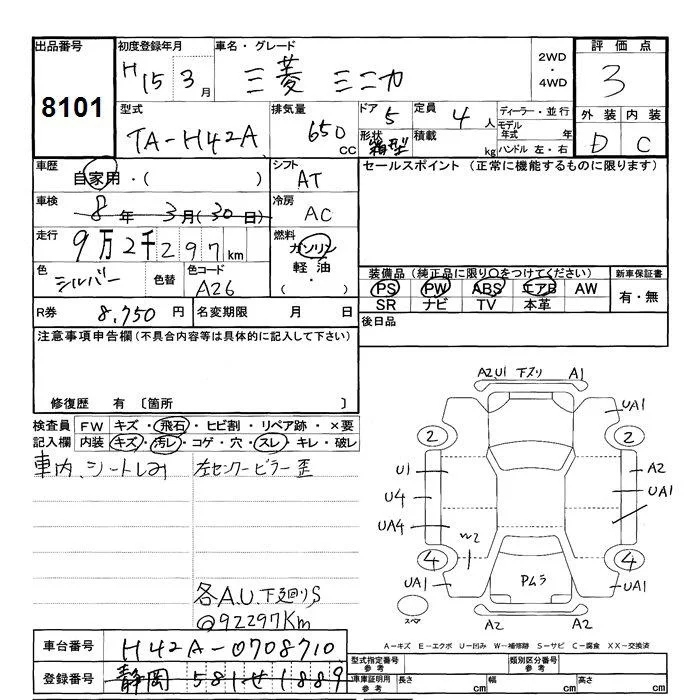 出品番号
8101
初度登録年月
H15 3月
車名・グレード
三菱 ミニカ
2WD
・
4WD
評価点
3
外装 内装
D C
型式
TA-H42A
排気量
650 CC
ドア 5
形状 箱型
定員 4人
積載 kg
ディーラー・並行
モデル年式 年
ハンドル 左・右
車歴
自家用・( )
シフト
AT
セールスポイント (正常に機能するものに限ります)
車検
8年 3月(30日)
冷房
AC
走行
9万2千297km
燃料
ガソリン
軽油
( ・ )
色
シルバー
色替
色コード
A26
装備品 (純正品に限り○をつけてください)
PS PW ABS エアB AW
SR ナビ TV 本革
新車保証書
有・無
R券 8,750円
名変期限 月 日
後日品
注意事項申告欄(不具合内容等は具体的に記入して下さい)
修復歴 有 〔箇所 〕
検査員記入欄
FW キズ・飛石・ヒビ割・リペア跡・×要
内装 キズ・汚レ・コゲ・穴・スレ・キレ・破レ
車内、シートしみ
左センターピラー歪
各A.U.下廻りS
@92297Km
A2,U1 下ズリ A1
UA1
2 2
U1 A2
U4 UA1
UA4
W2
4 4
Pムラ
UA1 UA1
スペア
A2 A2
A-キズ E-エクボ U-凹み W-補修跡 S-サビ C-腐食 XX-交換済
車台番号 H42A-0708710
登録番号 静岡 581 せ 1889
型式指定番号
参考
類別区分番号
参考
車庫証明用
参考
長さ cm
幅 cm
高さ cm